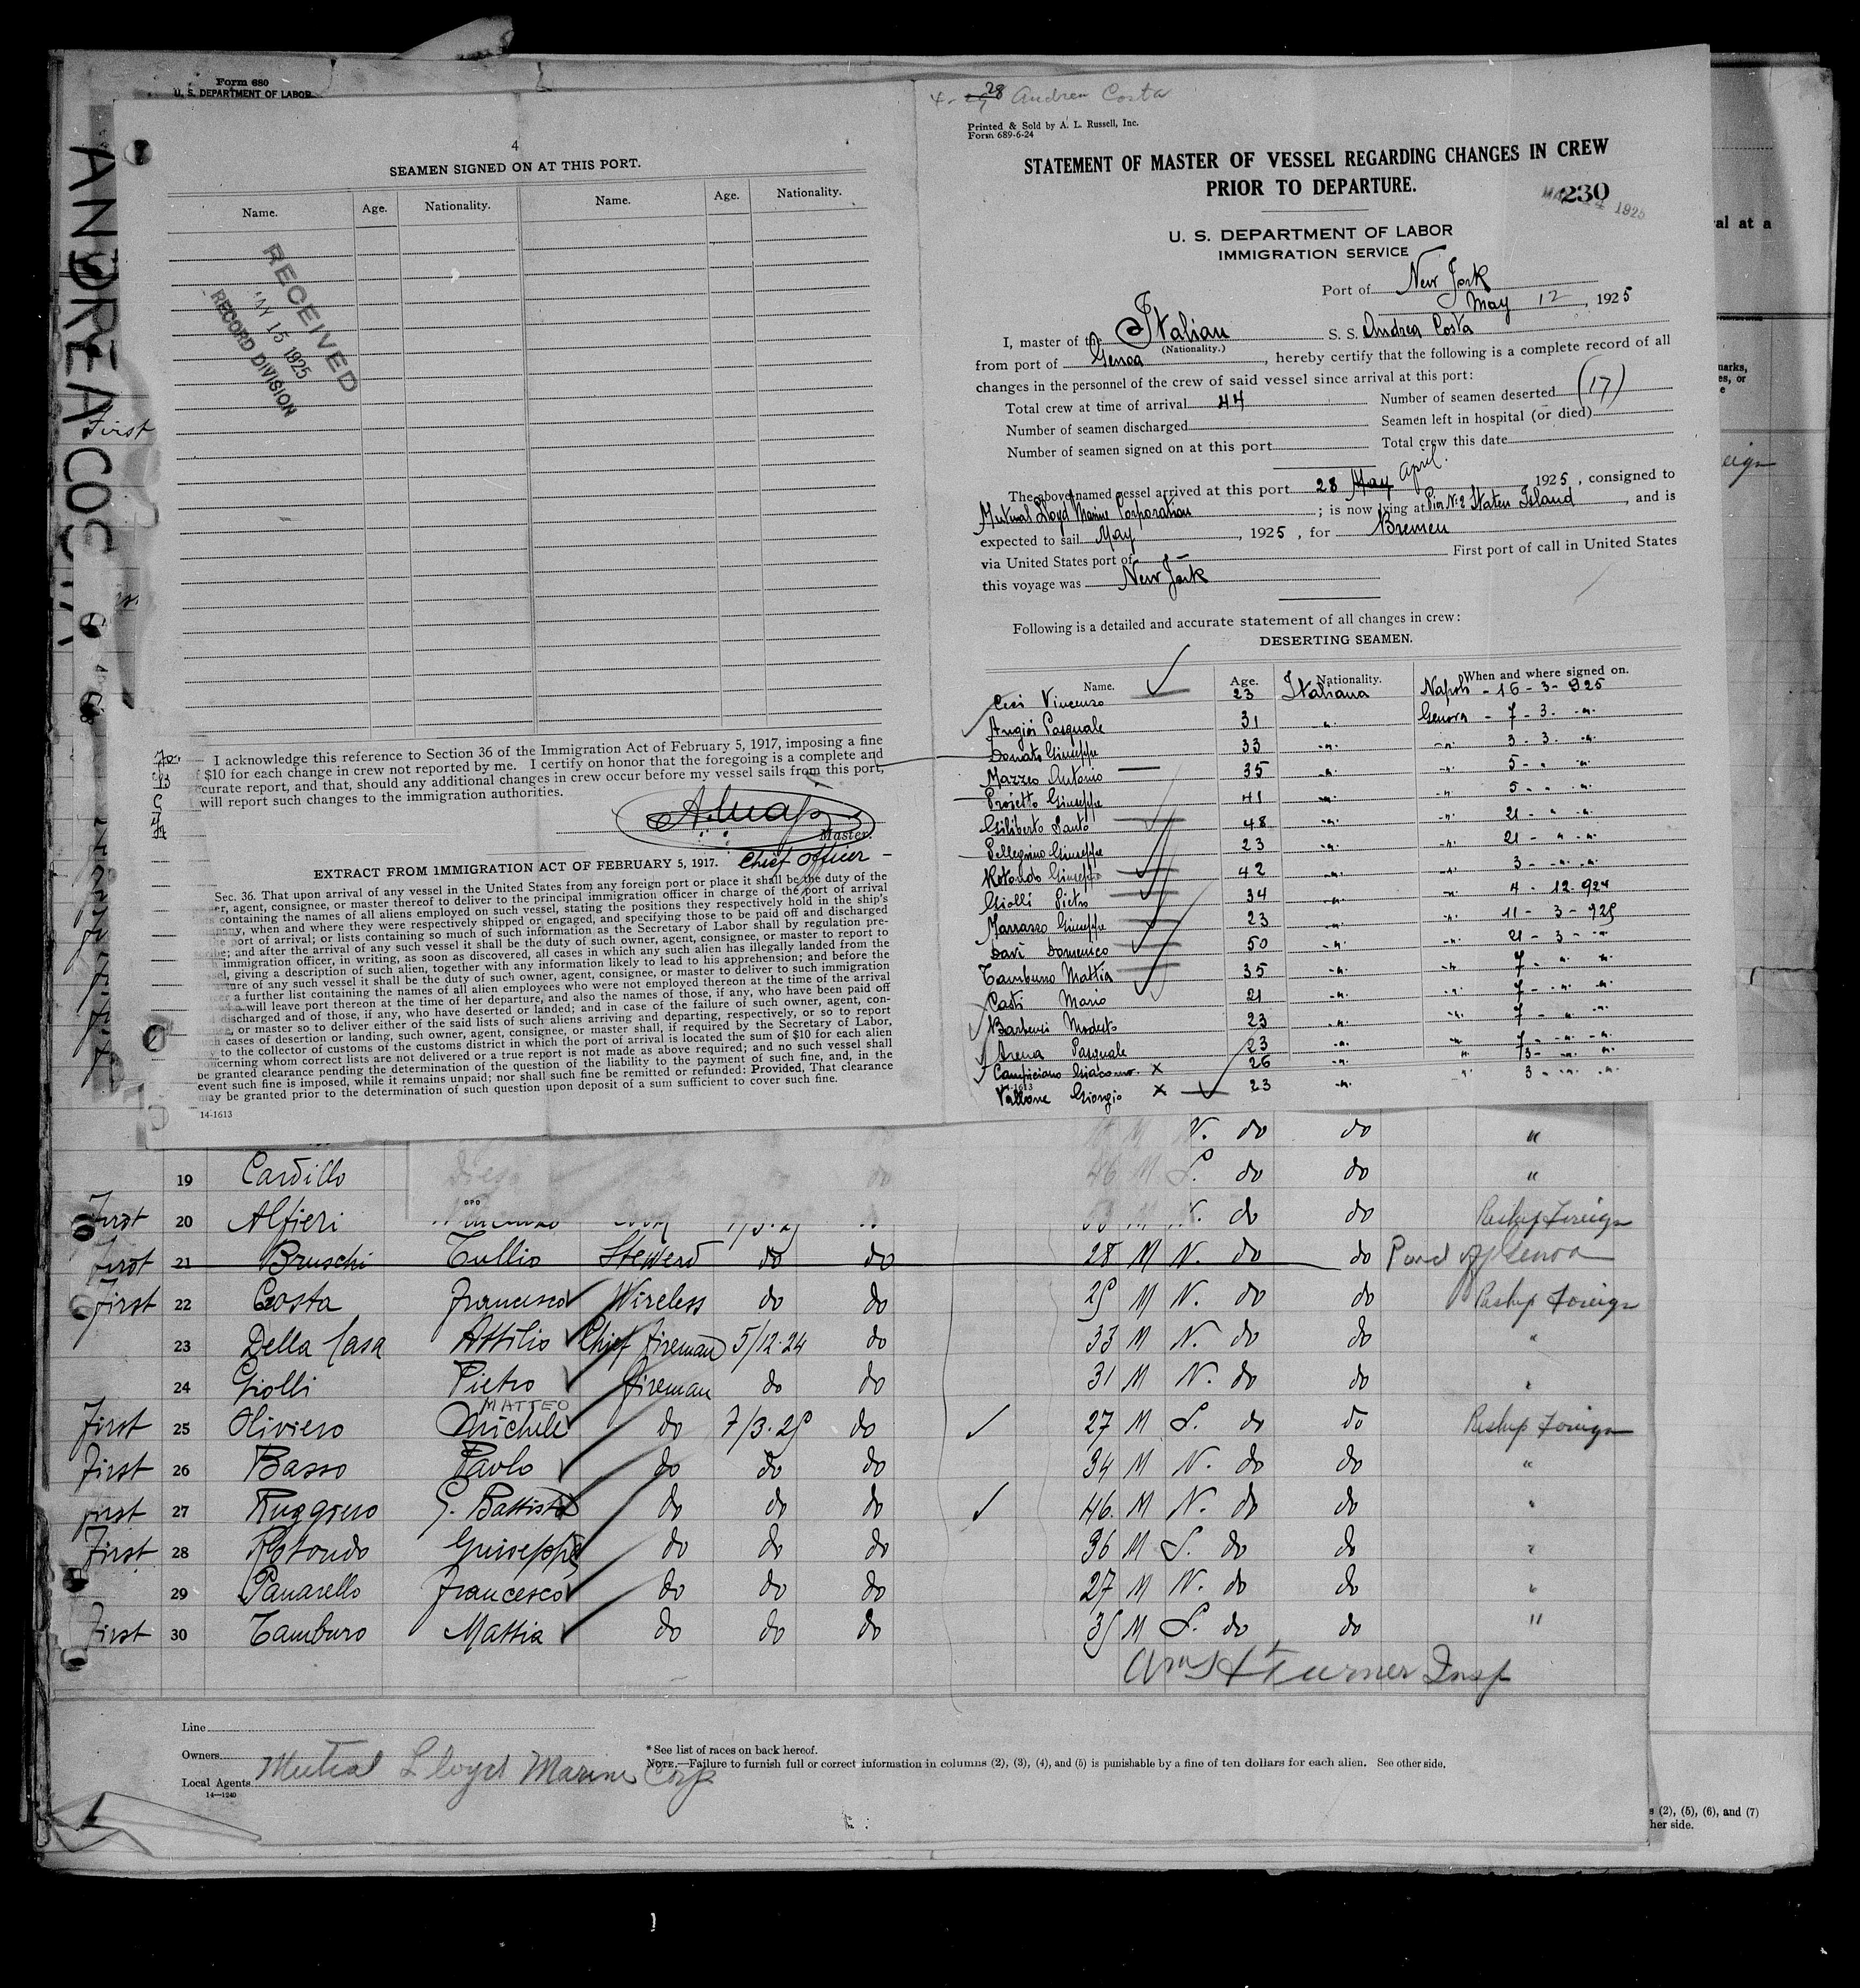 Form 680
U. S. DEPARTMENT OF LABOR
ANDREA COS
4
SEAMEN SIGNED ON AT THIS PORT.
Name. Age. Nationality. Name. Age. Nationality.
RECEIVED
15 1925
RECORD DIVISION
First
I acknowledge this reference to Section 36 of the Immigration Act of February 5, 1917, imposing a fine
$10 for each change in crew not reported by me. I certify on honor that the foregoing is a complete and
curate report, and that, should any additional changes in crew occur before my vessel sails from this port,
will report such changes to the immigration authorities.
Master.
Chief Officer
EXTRACT FROM IMMIGRATION ACT OF FEBRUARY 5, 1917.
Sec. 36. That upon arrival of any vessel in the United States from any foreign port or place it shall be the duty of the
er, agent, consignee, or master thereof to deliver to the principal immigration officer in charge of the port of arrival
containing the names of all aliens employed on such vessel, stating the positions they respectively hold in the ship's
any, when and where they were respectively shipped or engaged, and specifying those to be paid off and discharged
the port of arrival; or lists containing so much of such information as the Secretary of Labor shall by regulation pre-
; and after the arrival of any such vessel it shall be the duty of such owner, agent, consignee, or master to report to
immigration officer, in writing, as soon as discovered, all cases in which any such alien has illegally landed from the
el, giving a description of such alien, together with any information likely to lead to his apprehension; and before the
ure of any such vessel it shall be the duty of such owner, agent, consignee, or master to deliver to such immigration
a further list containing the names of all alien employees who were not employed thereon at the time of the arrival
will leave port thereon at the time of her departure, and also the names of those, if any, who have been paid off
discharged and of those, if any, who have deserted or landed; and in case of the failure of such owner, agent, con-
, or master so to deliver either of the said lists of such aliens arriving and departing, respectively, or so to report
h cases of desertion or landing, such owner, agent, consignee, or master shall, if required by the Secretary of Labor,
to the collector of customs of the customs district in which the port of arrival is located the sum of $10 for each alien
oncerning whom correct lists are not delivered or a true report is not made as above required; and no such vessel shall
be granted clearance pending the determination of the question of the liability to the payment of such fine, and, in the
event such fine is imposed, while it remains unpaid; nor shall such fine be remitted or refunded: Provided, That clearance
may be granted prior to the determination of such question upon deposit of a sum sufficient to cover such fine.
14-1613
28 Andrea Costa
Printed & Sold by A. L. Russell, Inc.
Form 689-6-24
STATEMENT OF MASTER OF VESSEL REGARDING CHANGES IN CREW
PRIOR TO DEPARTURE.
230
1925
U. S. DEPARTMENT OF LABOR
IMMIGRATION SERVICE
Port of New York
May 12, 1925
I, master of the Italian S. S. Andrea Costa
(Nationality.)
from port of Genoa, hereby certify that the following is a complete record of all
changes in the personnel of the crew of said vessel since arrival at this port:
Total crew at time of arrival 44 Number of seamen deserted (17)
Number of seamen discharged Seamen left in hospital (or died)
Number of seamen signed on at this port Total crew this date
The above named vessel arrived at this port 28 May April. 1925, consigned to
Mutual Lloyd Marine Corporation; is now lying at Pier N.2 Staten Island, and is
expected to sail May, 1925, for Bremen
via United States port of — First port of call in United States
this voyage was New York
Following is a detailed and accurate statement of all changes in crew:
DESERTING SEAMEN.
Name. Age. Nationality. When and where signed on.
Vincenzo 23 Italiana Napoli - 16 - 3 - 925
Pasquale 31 " Genova - 7 - 3. - "
Donato Giuseppe 33 " " 3 - 3. - "
Mazzeo Antonio 35 " " 5 - " - "
Proietto Giuseppe 41 " " 5 - " - "
Giliberto Santo 48 " " 21 - " - "
Pellegrino Giuseppe 23 " " 21 - " - "
Rotondo Giuseppe 42 " " 3 - " - "
Giolli Pietro 34 " " 4 - 12 - 924
Marrasso Giuseppe 23 " " 11 - 3 - 925
Davi Domenico 50 " " 21 - 3 - "
Tamburro Mattia 35 " " 7 - " - "
Casti Mario 21 " " 7 - " - "
Modesto 23 " " 7 - " - "
Arena Pasquale 23 " " 7 - " - "
Campiciano Giacomo x 26 " " 13 - " - "
14-1613
Vallone Giorgio x 23 " " 3 - " - "
N. do do "
19 Cardillo Diego do 46 M S. do do "
First 20 Alfieri do M N. do do Reship Foreign
First 21 Bruschi Tullio Steward do do 28 M N. do do
First 22 Costa Francesco Wireless do do 25 M N. do do Reship Foreign
23 Della Casa Attilio Chief Fireman 5/12-24 do 33 M N. do do "
24 Giolli Pietro Fireman do do 31 M N. do do "
MATTEO
First 25 Oliviero Michele do 7/3-25 do 27 M S. do do Reship Foreign
First 26 Basso Paolo do do do 34 M N. do do "
First 27 Ruggiero G. Battista do do do 46 M N. do do "
First 28 Rotondo Giuseppe do do do 36 M S. do do "
29 Panarello Francesco do do do 27 M N. do do "
First 30 Tamburo Mattia do do do 35 M S. do do "
Wm H Turner Insp
Line
Owners
Local Agents Mutual Lloyd Marine Corp
14—1240
* See list of races on back hereof.
NOTE.—Failure to furnish full or correct information in columns (2), (3), (4), and (5) is punishable by a fine of ten dollars for each alien. See other side.
al at a
narks,
es, or
e
eign
s (2), (5), (6), and (7)
her side.